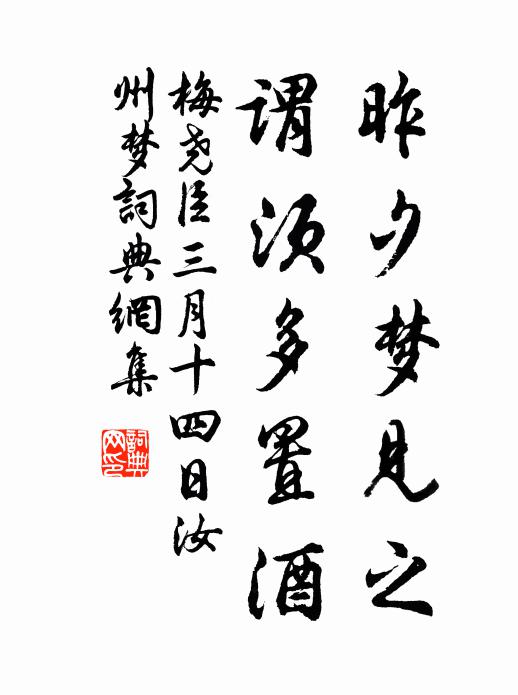 昨夕梦见之
谓须多置酒
梅尧臣三月十四日汝
州梦詞典網集
詞典网印